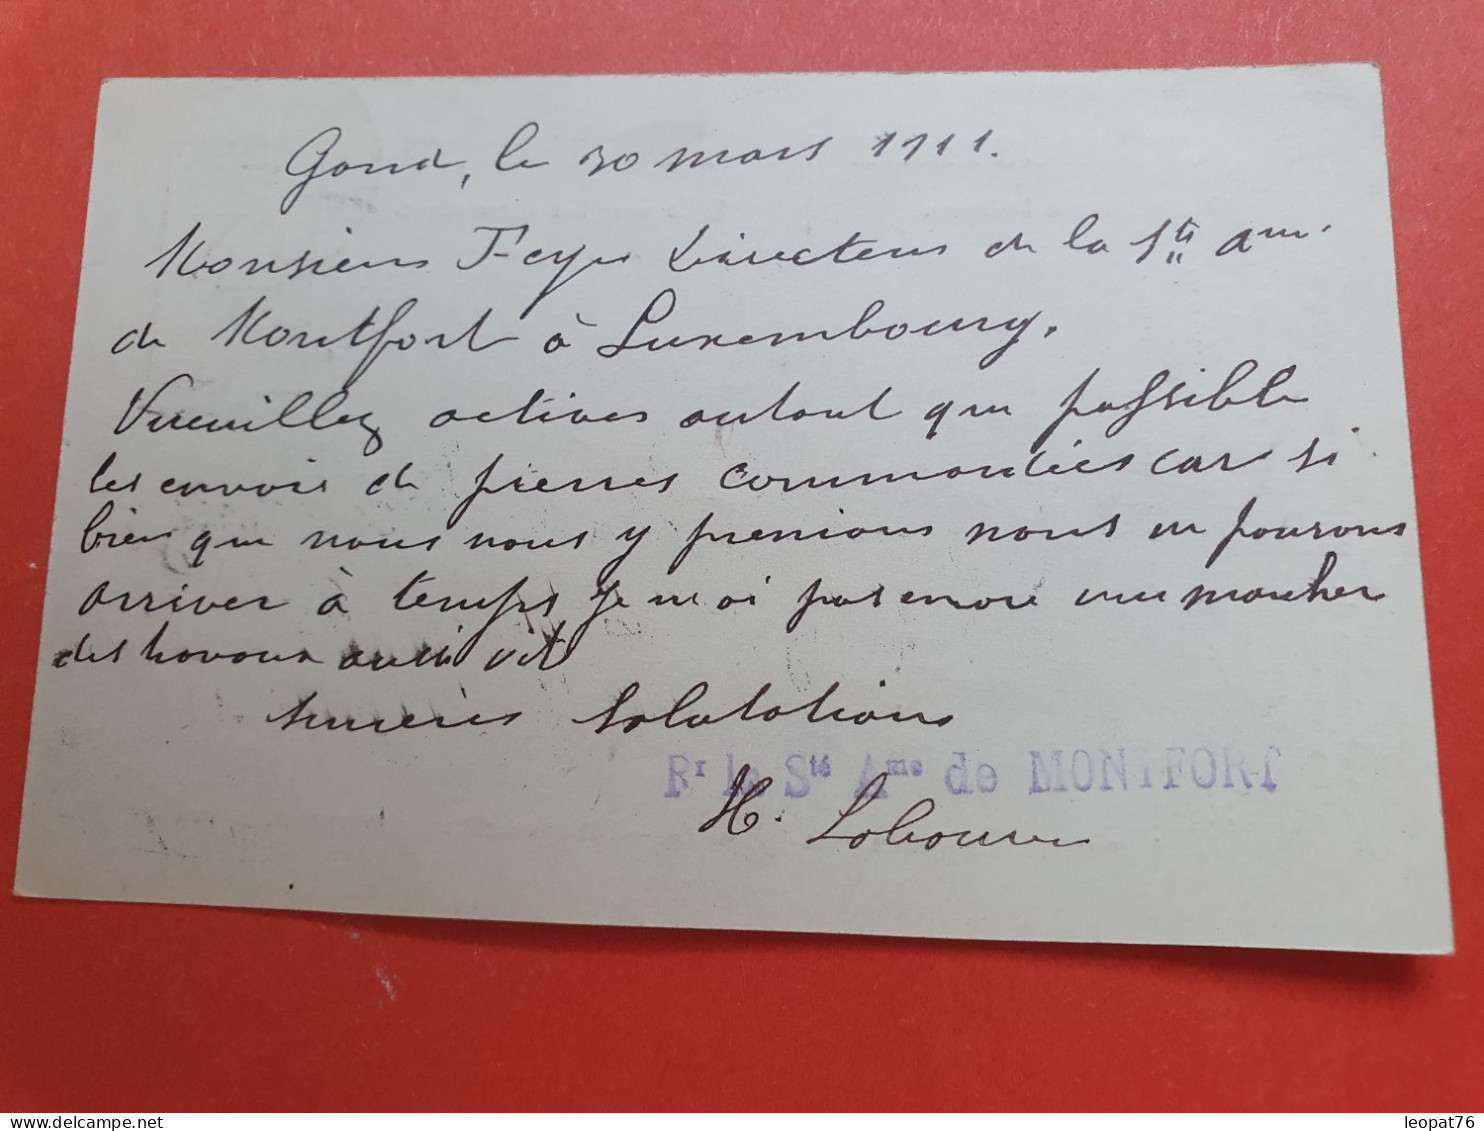 Gand, le 30 mars 1911.
Monsieur Feyer Directeur de la Sté am.
de Montfort à Luxembourg.
Veuillez activer autant que possible
les envois de pierres commandées car si
bien que nous nous y prenions nous ne pouvons
arriver à temps je n'ai pas encore vu marcher
des travaux aussi vite
Sincères Salutations
Pr la Sté Ame de MONTFORT
H.
leopat76